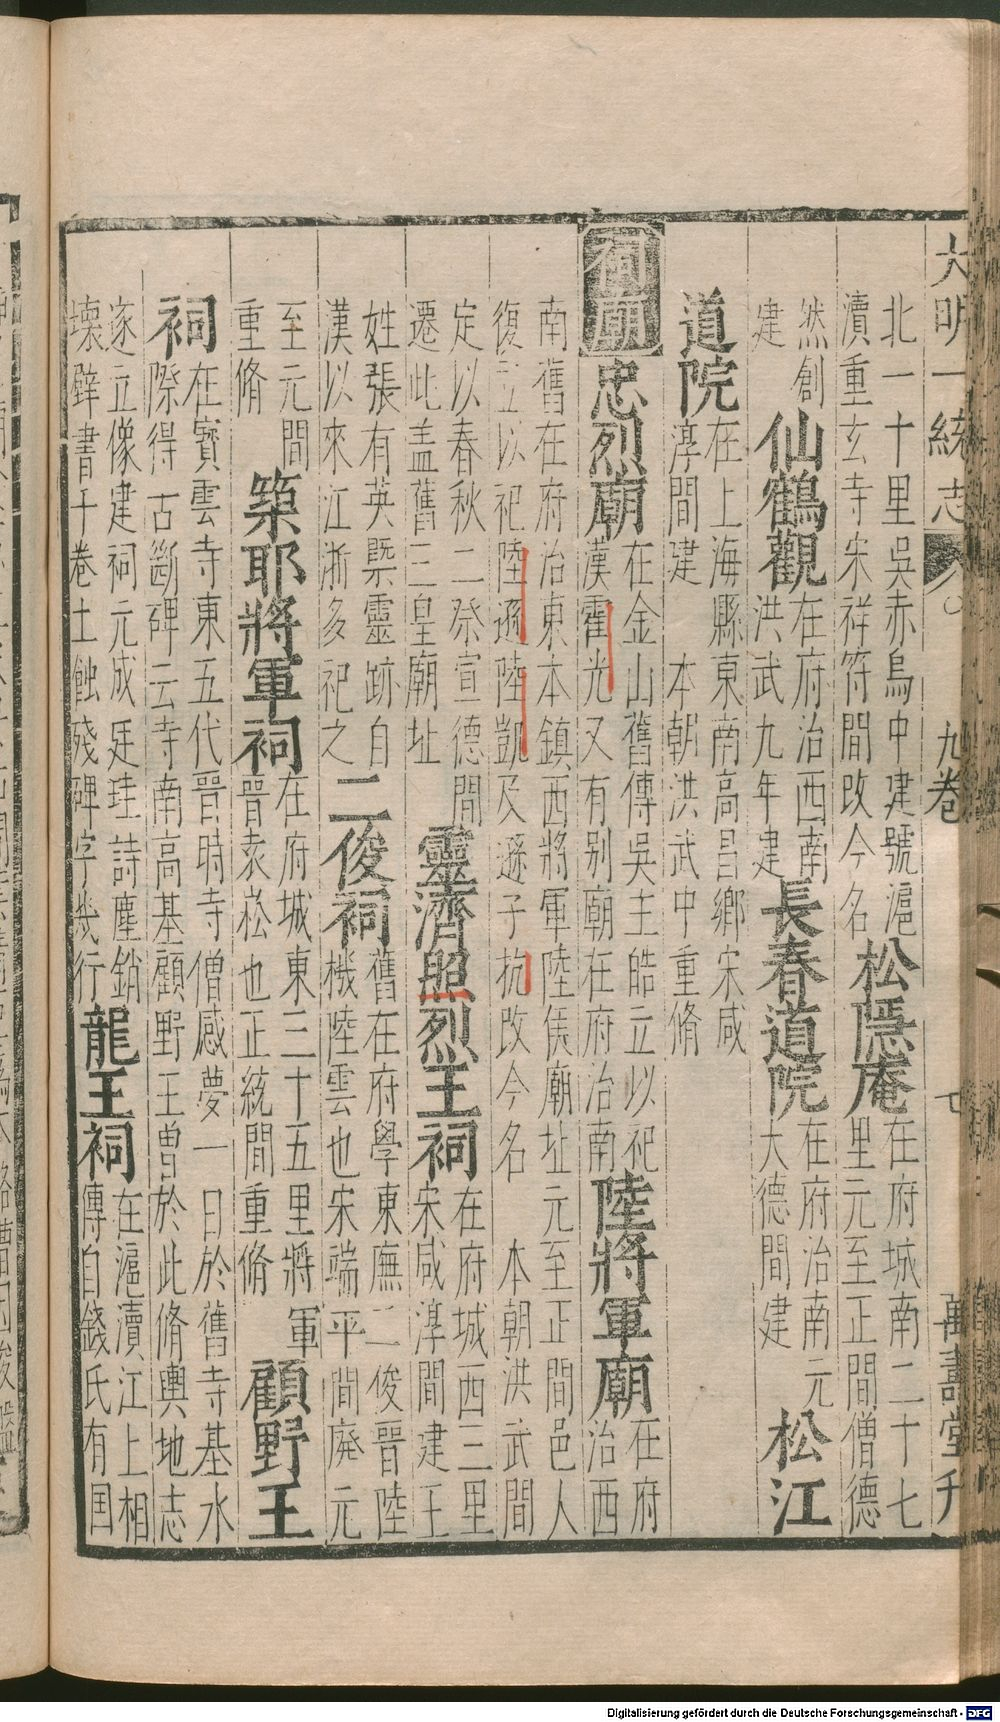 大明一統志 九卷 七 萬壽堂刋
北一十里吳赤烏中建號滬
瀆重玄寺宋祥符間改今名
松隱庵
在府城南二十七
里元至正間僧德
然創
建
仙鶴觀
在府治西南
洪武九年建
長春道院
在府治南元
大德間建
松江
道院
在上海縣東南高昌鄉宋咸
淳間建 本朝洪武中重脩
祠廟
忠烈廟
在金山舊傳吳主皓立以祀
漢霍光又有別廟在府治南
陸將軍廟
在府
治西
南舊在府治東本鎮西將軍陸侯廟址元至正間邑人
復立以祀陸遜陸凱及遜子抗改今名 本朝洪武間
定以春秋二祭宣德間
遷此盖舊三皇廟址
靈濟照烈王祠
在府城西三里
宋咸淳間建王
姓張有英槩靈跡自
漢以來江浙多祀之
二俊祠
舊在府學東廡二俊晉陸
機陸雲也宋端平間廢元
至元間
重脩
築耶將軍祠
在府城東三十五里將軍
晉袁崧也正統間重脩
顧野王
祠
在寳雲寺東五代晉時寺僧感夢一日於舊寺基水
際得古斷碑云寺南高基顧野王曽於此脩輿地志
遂立像建祠元成廷珪詩塵銷
壞壁書千卷土蝕殘碑字幾行
龍王祠
在滬瀆江上相
傳自錢氏有国
Digitalisierung gefördert durch die Deutsche Forschungsgemeinschaft - DFG